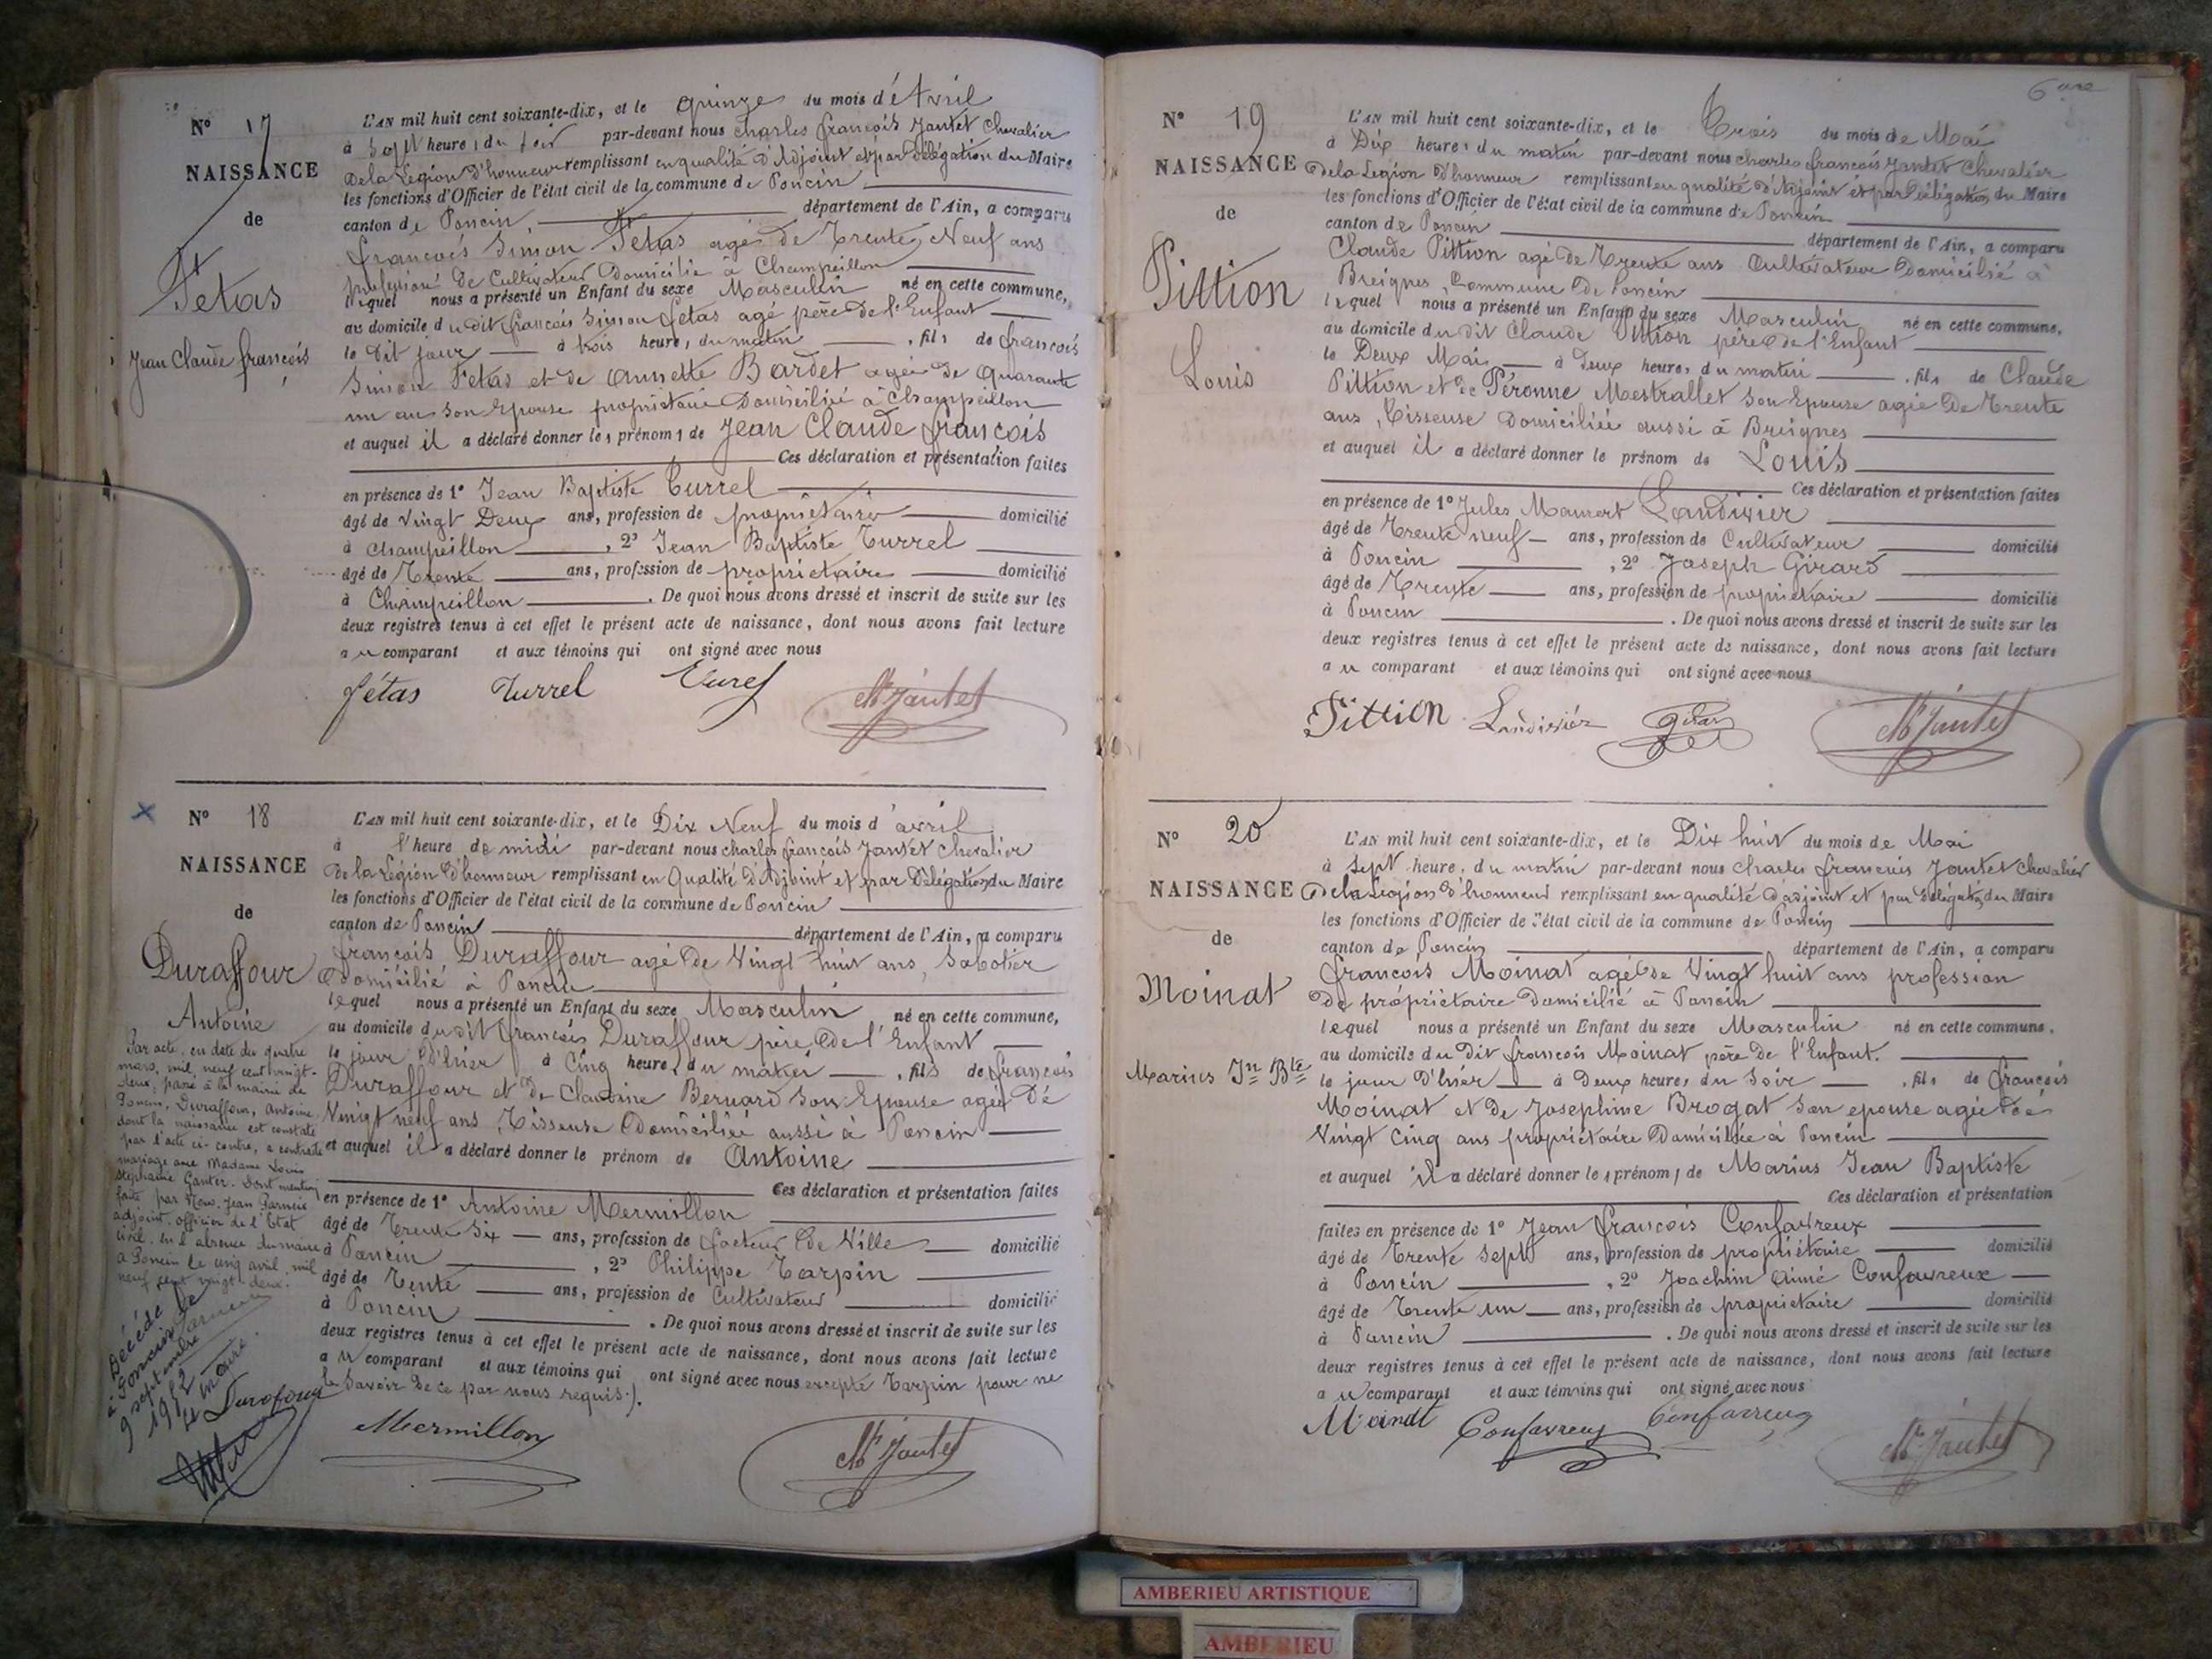 N° 17
NAISSANCE
de
Fétas
Jean Claude françois
L'AN mil huit cent soixante-dix, et le quinze du mois d'Avril
à Sept heures du soir par-devant nous Charles françois Jantet Chevalier
De la Légion D'honneur remplissant en qualité d'Adjoint et par Délégation du Maire
les fonctions d'Officier de l'état civil de la commune de Poncin
canton de Poncin, département de l'Ain, a comparu
françois Simon Fétas agé de Trente Neuf ans
profession de Cultivateur Domicilié à Champeillon
lequel nous a présenté un Enfant du sexe Masculin né en cette commune,
au domicile du dit françois Simon fétas agé père de l'Enfant
le dit jour à trois heures du matin, fils de françois
Simon Fétas et de Annette Bardet agée de Quarante
un an son Epouse propriétaire Domiciliée à Champeillon
et auquel il a déclaré donner les prénoms de Jean Claude françois
Ces déclaration et présentation faites
en présence de 1° Jean Baptiste Turrel
âgé de Vingt Deux ans, profession de propriétaire domicilié
à Champeillon, 2° Jean Baptiste Turrel
âgé de Trente ans, profession de propriétaire domicilié
à Champeillon. De quoi nous avons dressé et inscrit de suite sur les
deux registres tenus à cet effet le présent acte de naissance, dont nous avons fait lecture
au comparant et aux témoins qui ont signé avec nous
fétas Turrel Turel Ch Jantet
N° 18
NAISSANCE
de
Duraffour
Antoine
Par acte, en date du quatre
mars, mil, neuf cent vingt-
deux, passé à la mairie de
Poncin, Duraffour, Antoine,
dont la naissance est constatée
par l'acte ci-contre, a contracté
mariage avec Madame Louis
Stéphanie Ganter. Dont mention
faite par Nous, Jean Parnoix
adjoint, officier de l'Etat
civil, en l'absence du maire
à Poncin le cinq avril, mil
neuf cent vingt-deux.
Décédé
à Poncin le
9 septembre
le maire
L'AN mil huit cent soixante-dix, et le Dix Neuf du mois d'avril
à l'heure de midi par-devant nous charles françois Jantet Chevalier
De la Légion D'honneur remplissant en Qualité D'Adjoint et par Délégation du Maire
les fonctions d'Officier de l'état civil de la commune de Poncin
canton de Poncin département de l'Ain, a comparu
françois Duraffour agé de Vingt huit ans, Sabotier
Domicilié à Poncin
lequel nous a présenté un Enfant du sexe Masculin né en cette commune,
au domicile du dit françois Duraffour père de l'Enfant
le jour d'hier à Cinq heures du matin, fils de françois
Duraffour et de Claudine Bernard son Epouse agée De
Vingt neuf ans Tisseuse Domiciliée aussi à Poncin
et auquel il a déclaré donner le prénom de Antoine
Ces déclaration et présentation faites
en présence de 1° Antoine Mermillon
âgé de Trente Six ans, profession de facteur De Ville domicilié
à Poncin, 2° Philippe Tarpin
âgé de Trente ans, profession de Cultivateur domicilié
à Poncin. De quoi nous avons dressé et inscrit de suite sur les
deux registres tenus à cet effet le présent acte de naissance, dont nous avons fait lecture
au comparant et aux témoins qui ont signé avec nous excepté Tarpin pour ne
le Savoir de ce par nous requis.
Durafour Mermillon Ch Jantet
N° 19
NAISSANCE
de
Pittion
Louis
L'AN mil huit cent soixante-dix, et le Trois du mois de Mai
à Dix heures du matin par-devant nous charles françois Jantet Chevalier
De la Légion D'honneur remplissant en qualité d'Adjoint et par Délégation du Maire
les fonctions d'Officier de l'état civil de la commune de Poncin
canton de Poncin département de l'Ain, a comparu
Claude Pittion agé de Trente ans Cultivateur Domicilié à
Breignes, Commune De Poncin
lequel nous a présenté un Enfant du sexe Masculin né en cette commune,
au domicile du dit Claude Pittion père de l'Enfant
le Deux Mai à deux heures du matin, fils de Claude
Pittion et de Péronne Mestrallet Son Epouse agée De Trente
ans, Tisseuse Domiciliée aussi à Breignes
et auquel il a déclaré donner le prénom de Louis
Ces déclaration et présentation faites
en présence de 1° Jules Mamert Landivier
âgé de Trente neuf ans, profession de Cultivateur domicilié
à Poncin, 2° Joseph Girard
âgé de Trente ans, profession de propriétaire domicilié
à Poncin. De quoi nous avons dressé et inscrit de suite sur les
deux registres tenus à cet effet le présent acte de naissance, dont nous avons fait lecture
au comparant et aux témoins qui ont signé avec nous
Pittion Landivier Ch Jantet
N° 20
NAISSANCE
de
Moinat
Marius Jn Bte
L'AN mil huit cent soixante-dix, et le Dix huit du mois de Mai
à Sept heures du matin par-devant nous Charles françois Jantet Chevalier
De la Légion D'honneur remplissant en qualité d'adjoint et par Délégation du Maire
les fonctions d'Officier de l'état civil de la commune de Poncin
canton de Poncin département de l'Ain, a comparu
françois Moinat agé de Vingt huit ans profession
De propriétaire Domicilié à Poncin
lequel nous a présenté un Enfant du sexe Masculin né en cette commune,
au domicile du Dit françois Moinat père De l'Enfant.
le jour D'hier à Deux heures du Soir, fils de françois
Moinat et De Josephine Brogat Son epouse agée De
Vingt Cinq ans propriétaire Domiciliée à Poncin
et auquel il a déclaré donner les prénoms de Marius Jean Baptiste
Ces déclaration et présentation
faites en présence de 1° Jean françois Confavreux
âgé de Trente Sept ans, profession de propriétaire domicilié
à Poncin, 2° Joachin Aimé Confavreux
âgé de Trente un ans, profession de propriétaire domicilié
à Poncin. De quoi nous avons dressé et inscrit de suite sur les
deux registres tenus à cet effet le présent acte de naissance, dont nous avons fait lecture
au comparant et aux témoins qui ont signé avec nous
Moinat Confavreux Confavreux Ch Jantet
AMBERIEU ARTISTIQUE
AMBERIEU